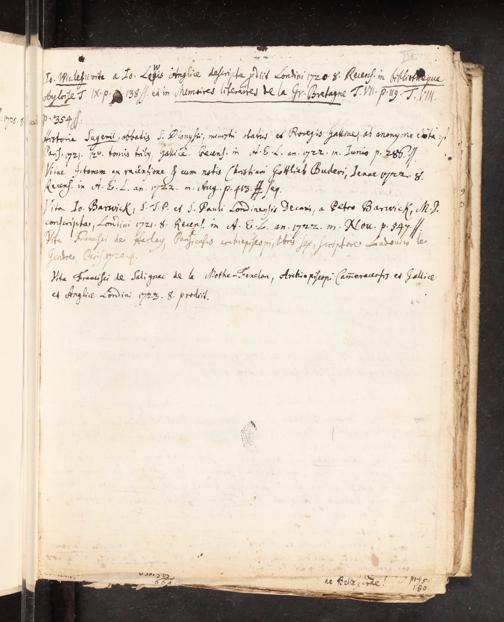 Io. Wiclefi vita a Io. Lewis Anglice descripta prodiit Londini 1720. 8. Recens. in Bibliotheque
Angloise T. IX. p. 138 ff. et in Memoires literaires de la Gr. Bretagne T. VII. p. 119. T. VIII.
p. 354 ff.
Historia Sugerii, abbatis S. Dionysii, ministri status et Regis Galliae, ab anonymo
Paris. 1721. tomis tribus, Gallice. Recens. in A. E. L. an. 1722. m. Junio p. 286 ff.
Vitae Ictorum ex recensione et cum notis Christiani Gottlieb Buderi, Ienae 1722. 8.
Recens. in A. E. L. an. 1722. m. Aug. p. 413. seq.
Vita Io. Barwick, S. T. P. et S. Pauli Londinensis Decani, a Petro Barwick, M. D.
conscripta, Londini 1721. 8. Recens. in A. E. L. an. 1722. m. Nov. p. 547 ff.
Vita Francisci de Harlay, archiepiscopi, scriptore Ludovico le
Gendre, Paris. 1720. 4.
Vita Francisci de Salignac de la Mothe-Fenelon, Archiepiscopi Cameracensis et Gallice
et Anglice Londini 1723. 8. prodiit.